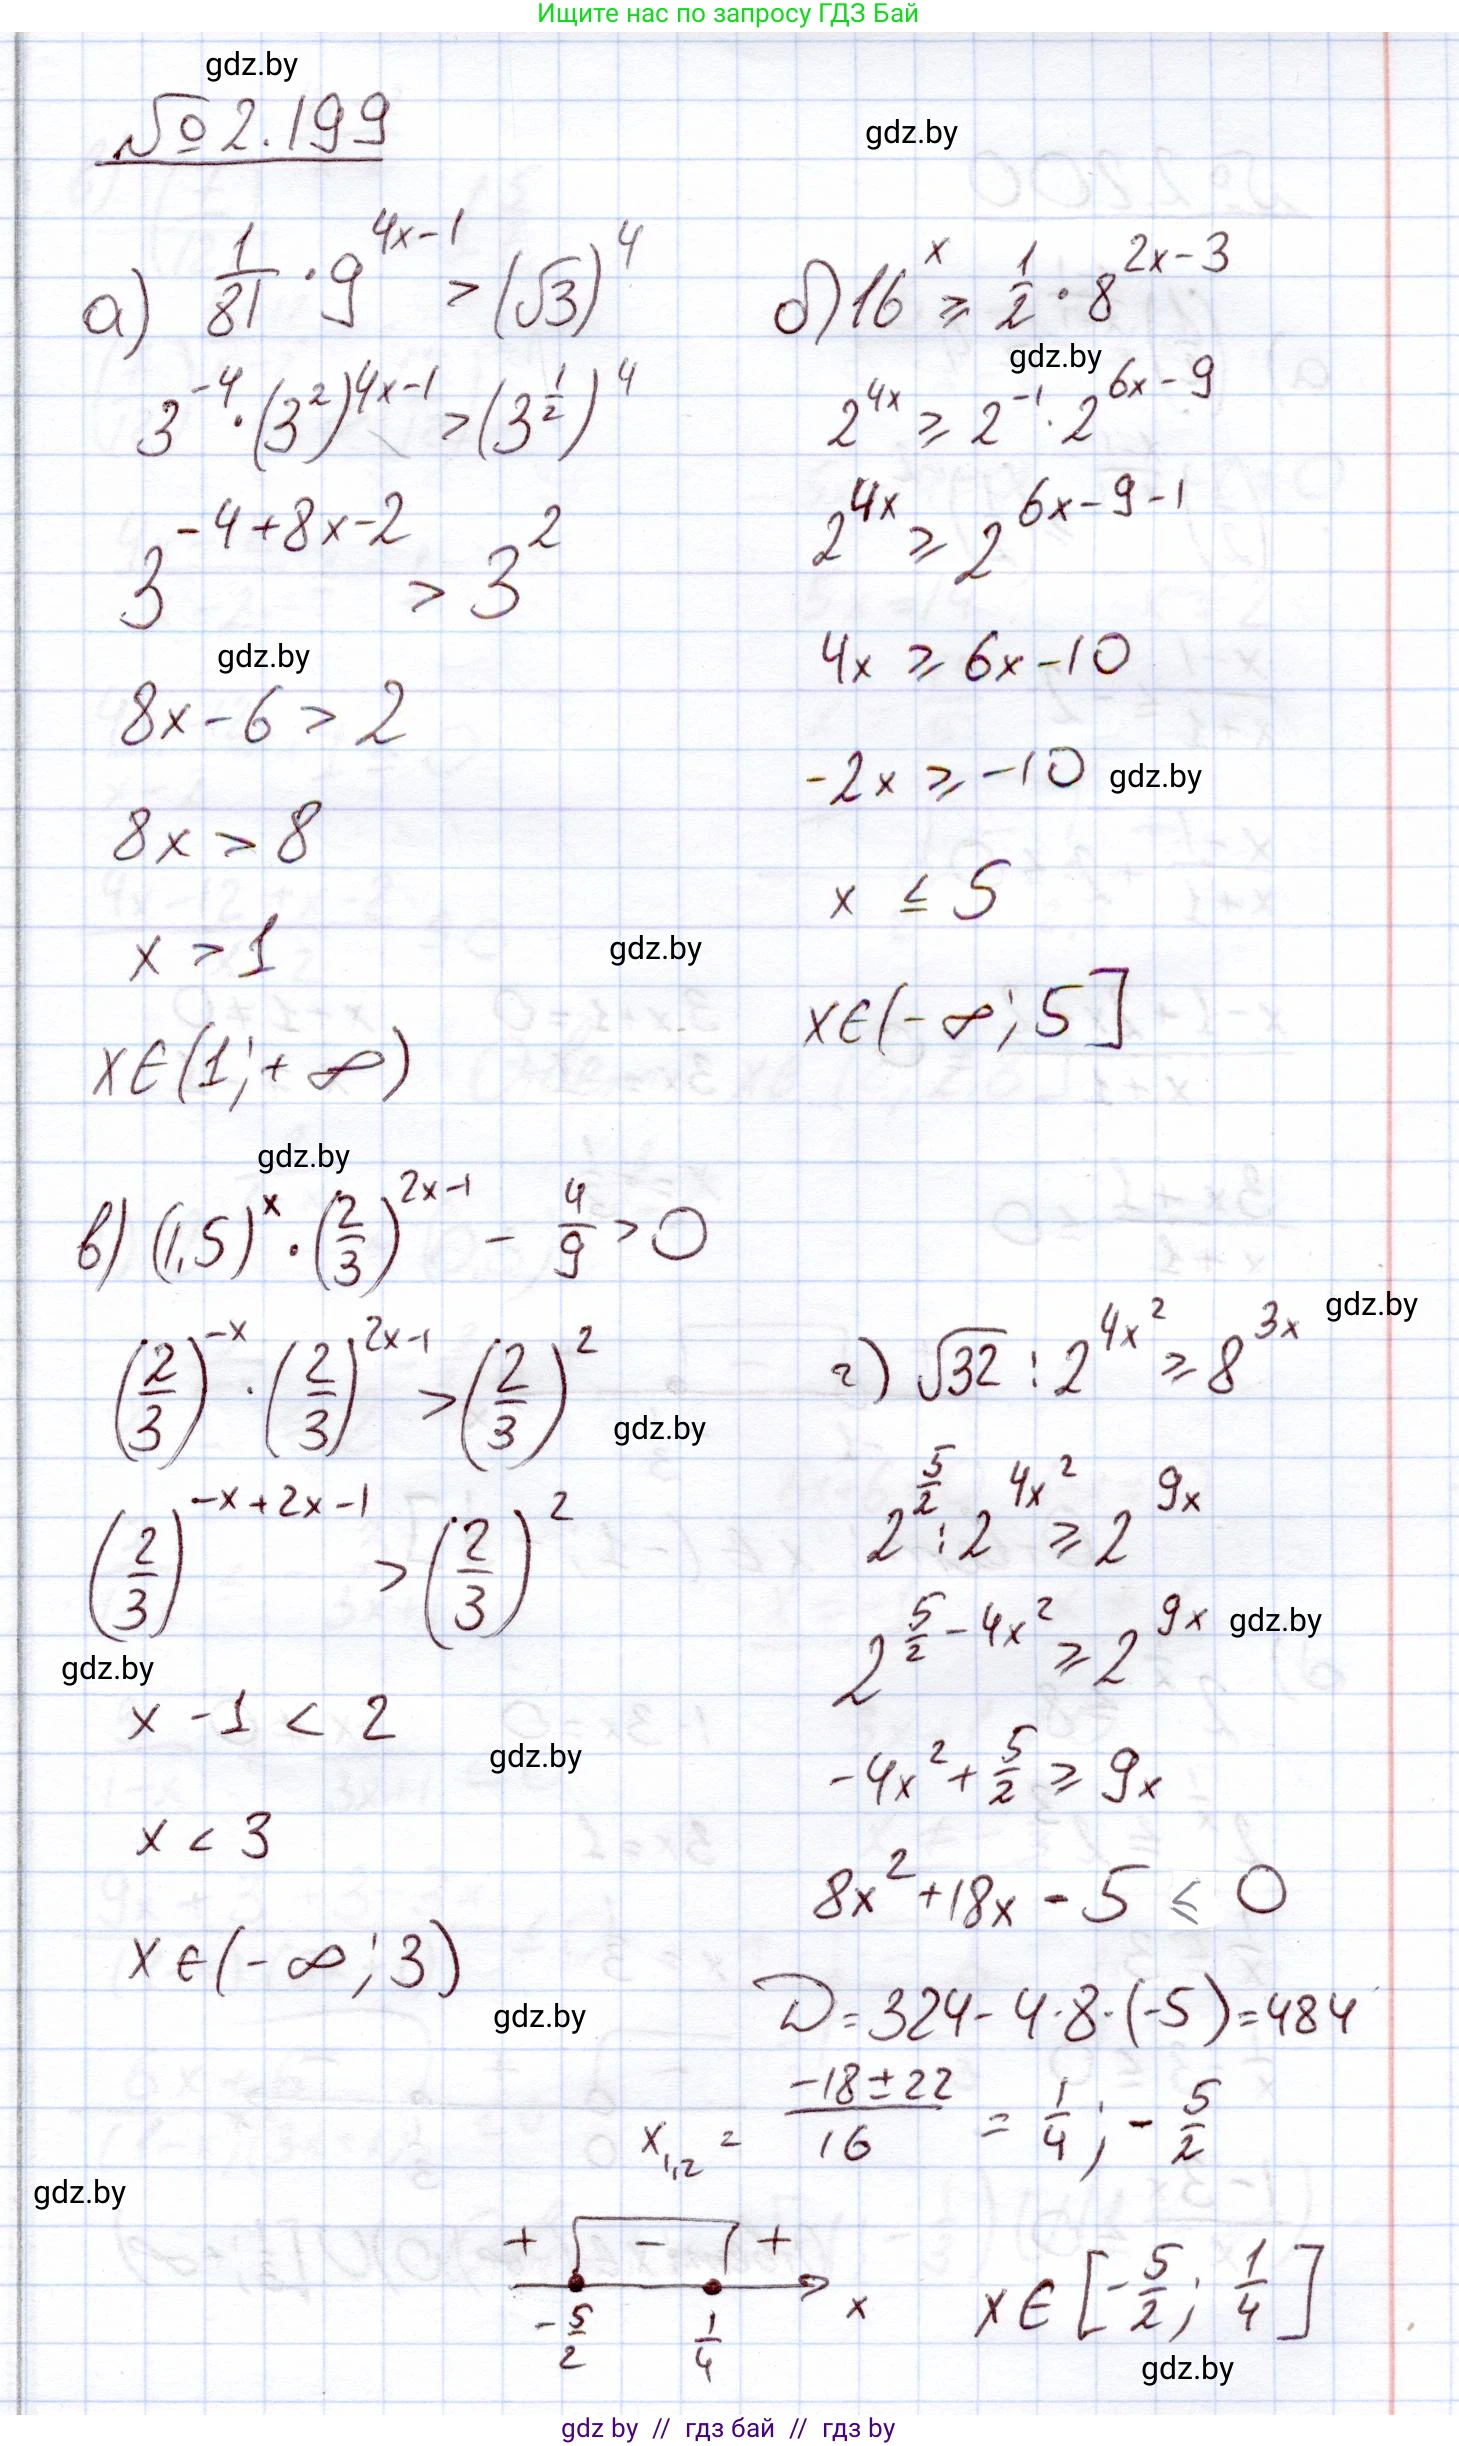 Ищите нас по запросу ГДЗ Бай
gdz.by
№2.199
gdz.by
а) 1/81 · 9^(4x-1) > (√3)^4
3^(-4) · (3^2)^(4x-1) > (3^(1/2))^4
3^(-4+8x-2) > 3^2
gdz.by
8x-6 > 2
8x > 8
x > 1
x∈(1;+∞)
б) 16^x ⩾ 1/2 · 8^(2x-3)
gdz.by
2^(4x) ⩾ 2^(-1) · 2^(6x-9)
2^(4x) ⩾ 2^(6x-9-1)
4x ⩾ 6x-10
-2x ⩾ -10 gdz.by
x ≤ 5
gdz.by
x∈(-∞;5]
gdz.by
в) (1,5)^x · (2/3)^(2x-1) - 4/9 > 0
(2/3)^(-x) · (2/3)^(2x-1) > (2/3)^2
gdz.by
(2/3)^(-x+2x-1) > (2/3)^2
gdz.by
x - 1 < 2
gdz.by
x < 3
x∈(-∞;3)
gdz.by
gdz.by
г) √32 : 2^(4x^2) ⩾ 8^(3x)
2^(5/2) : 2^(4x^2) ⩾ 2^(9x)
2^(5/2-4x^2) ⩾ 2^(9x) gdz.by
-4x^2 + 5/2 ⩾ 9x
8x^2 + 18x - 5 ≤ 0
D = 324 - 4·8·(-5) = 484
x1,2 = (-18±22)/16 = 1/4; -5/2
gdz.by
+ - +
-5/2 1/4 x
x∈[-5/2; 1/4]
gdz.by
gdz by // гдз бай // гдз by